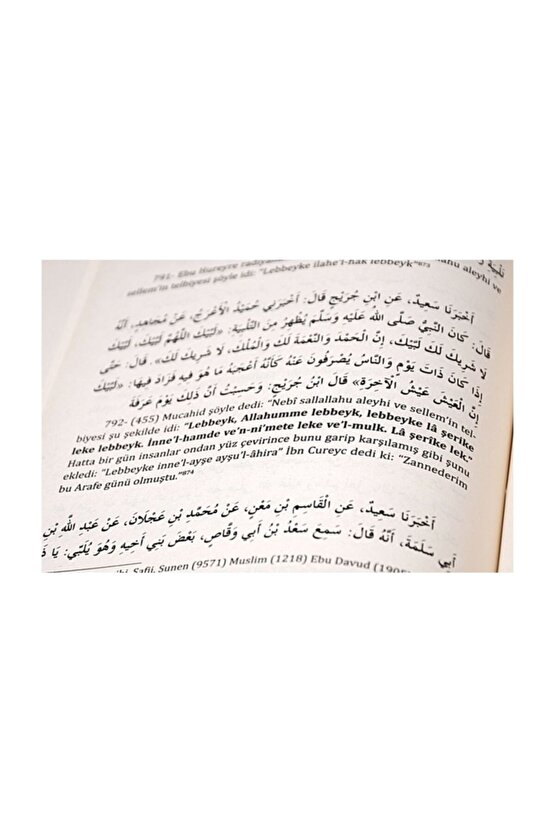 تَلْبِيَةِ
791- Ebu Hureyre aleyhi ve
sellem'in telbiyesi şöyle idi: "Lebbeyke ilahe'l-hak lebbeyk"873
أَخْبَرَنَا سَعِيدٌ، عَنِ ابْنِ جُرَيْجٍ قَالَ: أَخْبَرَنِي حُمَيْدٌ الْأَعْرَجُ، عَنْ مُجَاهِدٍ، أَنَّهُ
قَالَ: كَانَ النَّبِيُّ صَلَّى اللهُ عَلَيْهِ وَسَلَّمَ يُظْهِرُ مِنَ التَّلْبِيَةِ: «لَبَّيْكَ اللَّهُمَّ لَبَّيْكَ، لَبَّيْكَ
لَا شَرِيكَ لَكَ لَبَّيْكَ، إِنَّ الْحَمْدَ وَالنِّعْمَةَ لَكَ وَالْمُلْكَ، لَا شَرِيكَ لَكَ». قَالَ: حَتَّى
إِذَا كَانَ ذَاتَ يَوْمٍ وَالنَّاسُ يُصْرَفُونَ عَنْهُ كَأَنَّهُ أَعْجَبَهُ مَا هُوَ فِيهِ فَزَادَ فِيهَا: «لَبَّيْكَ
إِنَّ الْعَيْشَ عَيْشُ الْآخِرَةِ» قَالَ ابْنُ جُرَيْجٍ: وَحَسِبْتُ أَنَّ ذَلِكَ يَوْمُ عَرَفَةَ
792- (455) Mucahid şöyle dedi: "Nebî sallallahu aleyhi ve sellem'in tel-
biyesi şu şekilde idi: "Lebbeyk, Allahumme lebbeyk, lebbeyke lâ şerike
leke lebbeyk. İnne'l-hamde ve'n-ni'mete leke ve'l-mulk. Lâ şerîke lek."
Hatta bir gün insanlar ondan yüz çevirince bunu garip karşılamış gibi şunu
ekledi: "Lebbeyke inne'l-ayşe ayşu'l-âhira" İbn Cureyc dedi ki: "Zannederim
bu Arafe günü olmuştu."874
أَخْبَرَنَا سَعِيدٌ، عَنِ الْقَاسِمِ بْنِ مَعْنٍ، عَنْ مُحَمَّدِ بْنِ عَجْلَانَ، عَنْ عَبْدِ اللَّهِ بْنِ
أَبِي سَلَمَةَ، أَنَّهُ قَالَ: سَمِعَ سَعْدُ بْنُ أَبِي وَقَّاصٍ، بَعْضَ بَنِي أَخِيهِ وَهُوَ يُلَبِّي: يَا ذَ
Safii, Sunen (9571) Muslim (1218) Ebu Davud